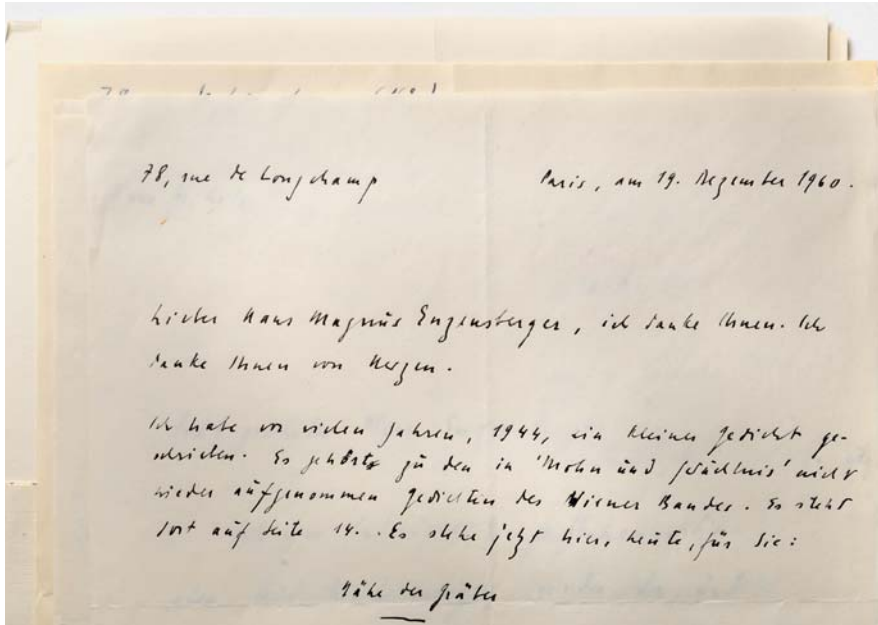 78, rue de Longchamp
Paris, am 19. Dezember 1960.
Lieber Hans Magnus Enzensberger, ich danke Ihnen. Ich
danke Ihnen von Herzen.
Ich habe vor vielen Jahren, 1944, ein kleines Gedicht ge-
schrieben. Es gehört zu den in 'Mohn und Gedächtnis' nicht
wieder aufgenommen Gedichten des Wiener Bandes. Es steht
dort auf Seite 14. Es stehe jetzt hier, heute, für Sie:
Nähe der Gräber